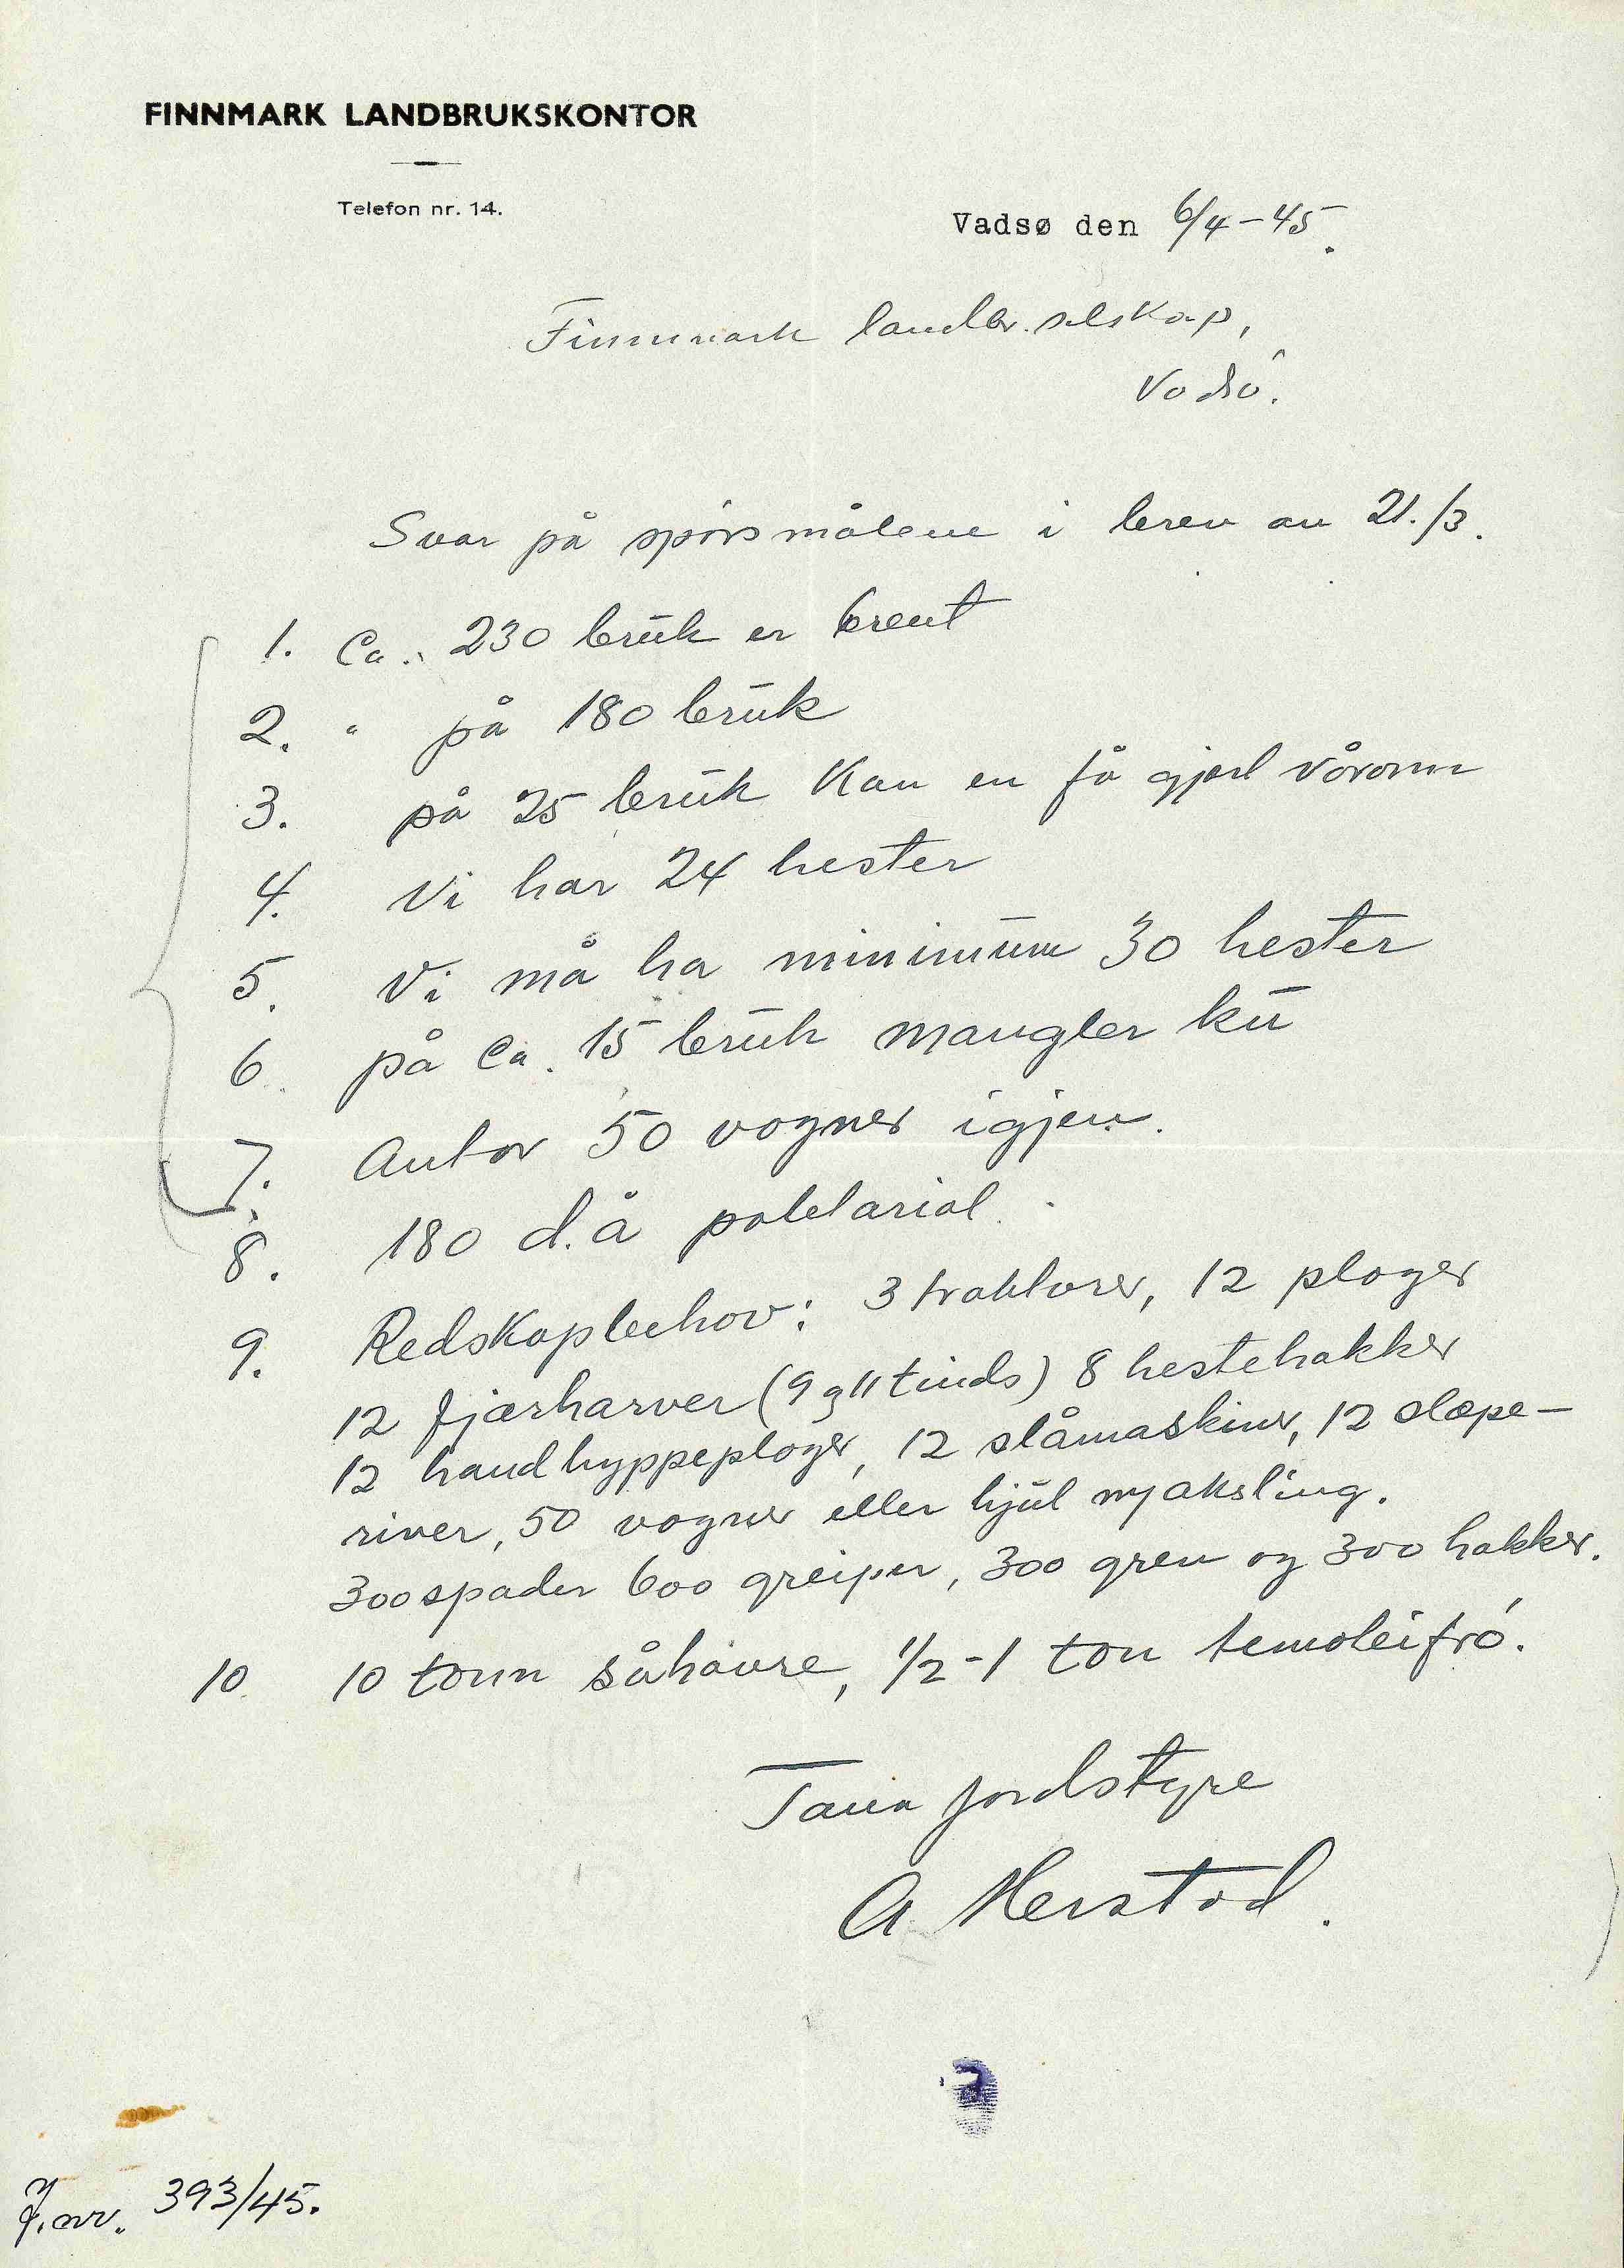 FINNMARK LANDBRUKSKONTOR
Telefon nr. 14.
Vadsø den 6/4-45.
Finnmark landbr. selskap,
Vadsö.
Svar på spörsmålene i brev av 21./3.
1. Ca. 230 bruk er brent
2. " på 180 bruk
3. på 25 bruk kan en få gjort våronn
4. Vi har 24 hester
5. Vi må ha minimum 30 hester
6. på ca. 15 bruk mangler ku
7. Antar 50 vogner igjen.
8. 180 d.å potetarial.
9. Redskapbehov: 3 traktorer, 12 ploger
12 fjærharver (9 og 11 tinds) 8 hestehakker
12 handhyppeploger, 12 slåmaskiner, 12 slæpe-
river, 50 vogner eller hjul m/aksling.
300 spader 600 greiper, 300 grev og 300 hakker.
10. 10 tonn såhavre, 1/2-1 ton temoteifrö.
Tana jordstyre
A. Herstad.
J.nr. 393/45.